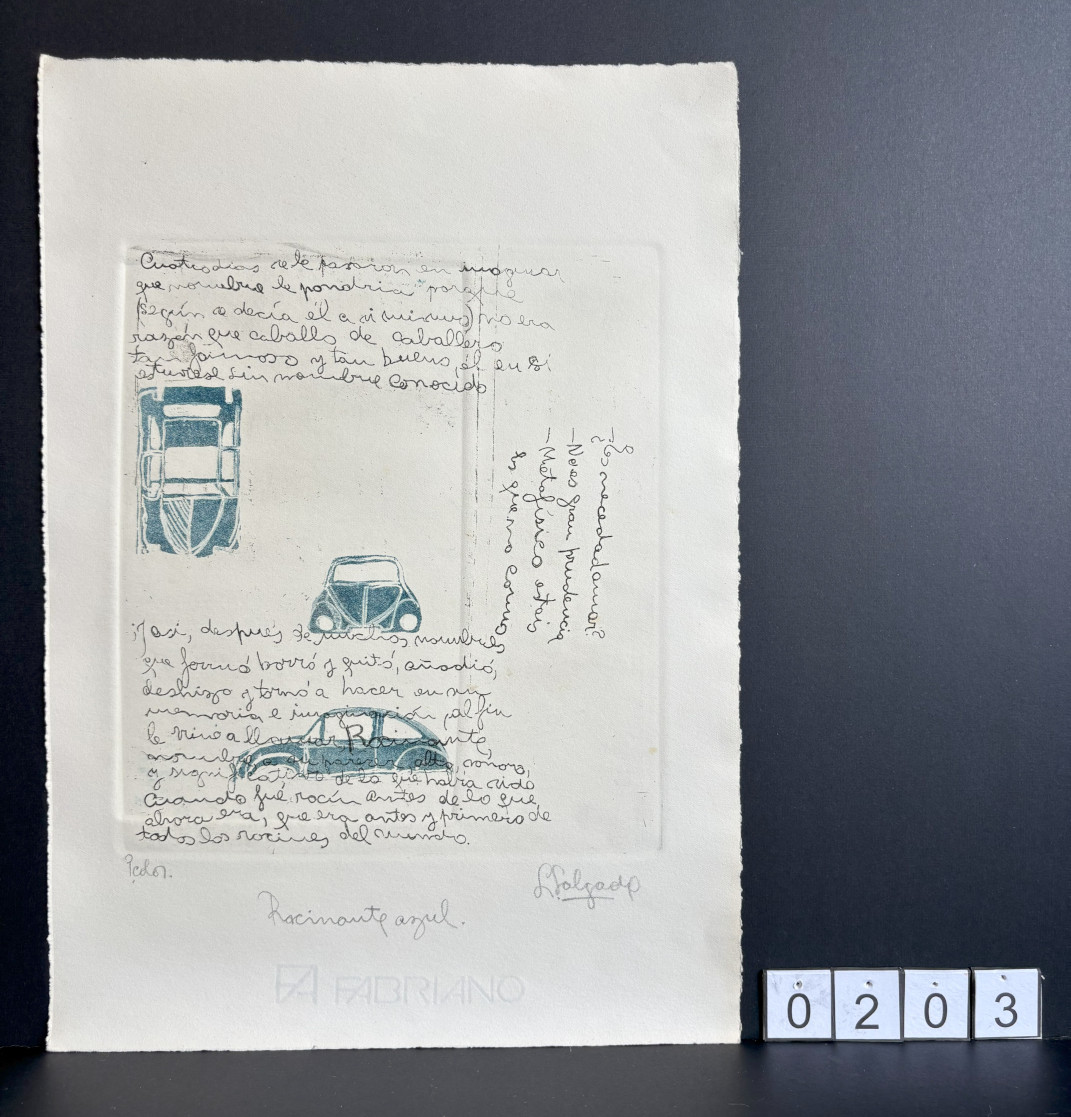 Cuatro dias se le pasaron en imaginar
que nombre le pondria porque
según se decía él a si mismo no era
razón que caballo de caballero
tan famoso y tan bueno él en si
estuviese sin nombre conocido
-¿Es necedad amar?
-No es gran prudencia
-Metafísico estáis
Es que no como
¡Y asi, después de muchos nombres
que formó borró y quitó, añadió,
deshizo y tornó a hacer en su
memoria e imaginación, al fin
le vino a llamar Rocinante,
nombre a su parecer alto, sonoro,
y significativo de lo que había sido
cuando fué rocín antes de lo que
ahora era, que era antes y primero de
todos los rocines del mundo.
Pcolor.
LSalgado
Rocinante azul.
FA FABRIANO
0203